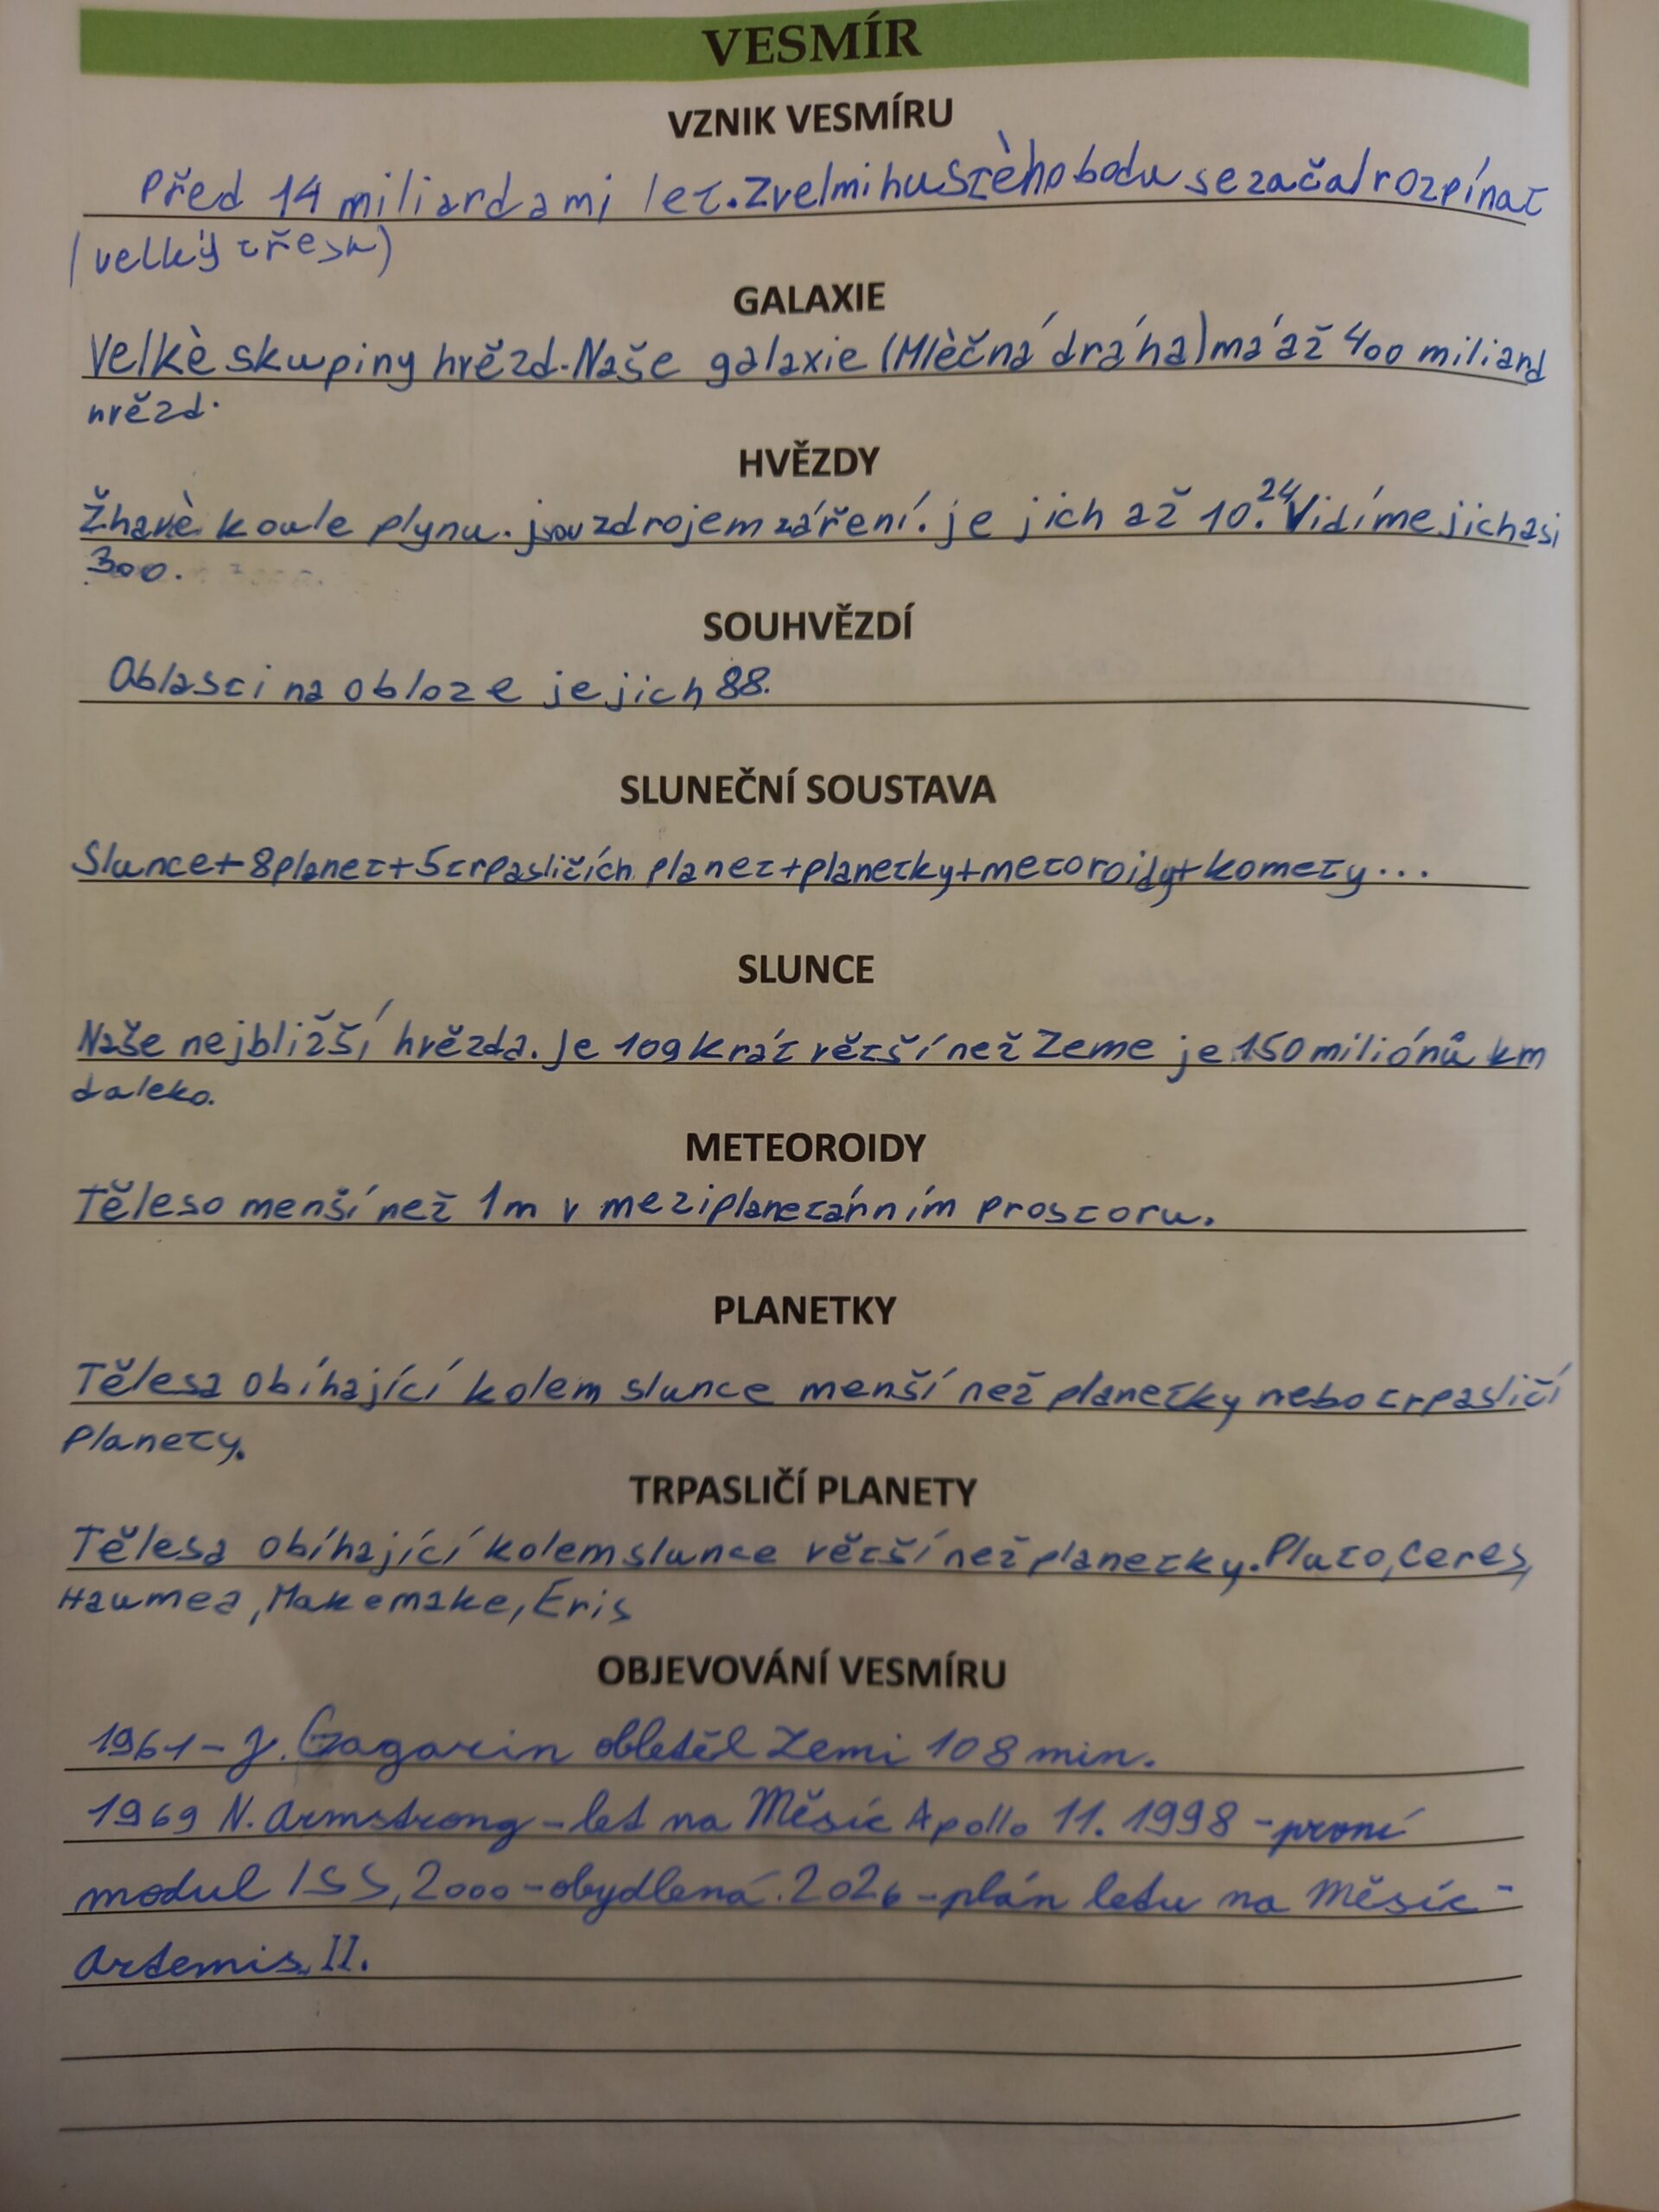 VESMÍR
VZNIK VESMÍRU
Před 14 miliardami let. Z velmi hustèho bodu se začal rozpínat
(velký třesk)
GALAXIE
Velkè skupiny hvězd. Naše galaxie (Mlèčná dráha) má až 400 miliard
hvězd.
HVĚZDY
Žhavè koule plynu. jsou zdrojem záření. je jich až 10²⁴. Vidíme jich asi
300.
SOUHVĚZDÍ
Oblasti na obloze je jich 88.
SLUNEČNÍ SOUSTAVA
Slunce+8planet+5trpasličích planet+planetky+metoroidy+komety...
SLUNCE
Naše nejbližší hvězda. Je 109krát větší než Zeme je 150 miliónů km
daleko.
METEOROIDY
Těleso menší než 1m v meziplanetárním prostoru.
PLANETKY
Tělesa obíhající kolem slunce menší než planetky nebo trpasličí
Planety.
TRPASLIČÍ PLANETY
Tělesa obíhající kolem slunce větší než planetky. Pluto, Ceres,
Haumea, Makemake, Eris
OBJEVOVÁNÍ VESMÍRU
1961 – J. Gagarin obletěl Zemi 108 min.
1969 N. Armstrong – let na Měsíc Apollo 11. 1998 – první
modul ISS, 2000 – obydlená. 2026 – plán letu na Měsíc –
Artemis II.